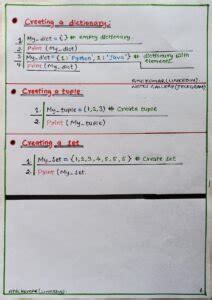 Creating a dictionary:
1 My_dict = {} # empty dictionary
2 Print (My_dict)
3 My_dict = {1: 'Python', 2: 'Java'} # dictionary with elements
4 Print (My_dict)
Creating a tuple
1. My_tuple = (1,2,3) # Create tuple
2 Print (My_tuple)
Creating a set
1. My_set = {1,2,3,4,5,5,5} # Create set
2 Print (My_set.